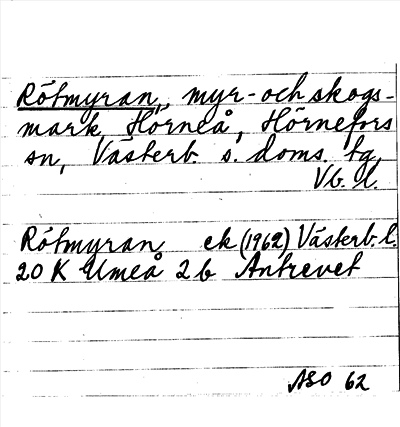 Rötmyran, myr- och skogs-
mark, Hörneå, Hörnefors
sn, Västerb. s. doms. tg,
Vb. l.
Rötmyran ek (1962) Västerb. l.
20 K Umeå 2 b Antrevet
ASO 62